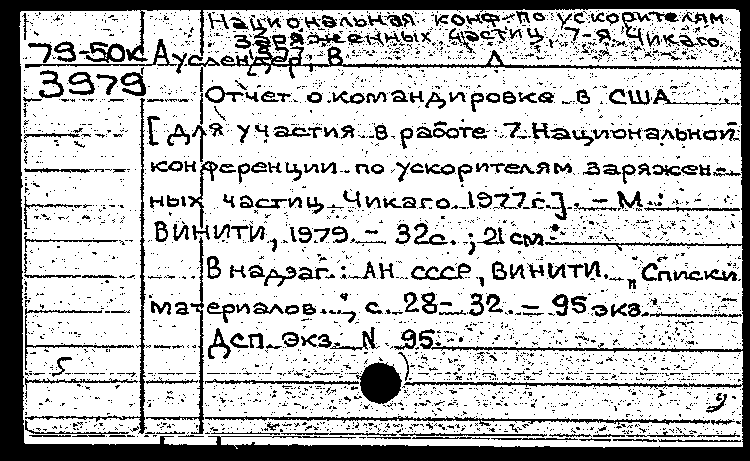 Национальная конф. по ускорителям
заряженных частиц, 7-я Чикаго
1977
79-50к Ауслендер, В Л
3979
Отчет о командировке в США
[для участия в работе 7 Национальной
конференции по ускорителям заряжен-
ных частиц Чикаго 1977 г.]. - М.:
ВИНИТИ, 1979. - 32с.; 21 см.
В надзаг.: АН СССР, ВИНИТИ. „Списки
материалов...", с. 28-32. - 95 экз.
Дсп. Экз. N 95.